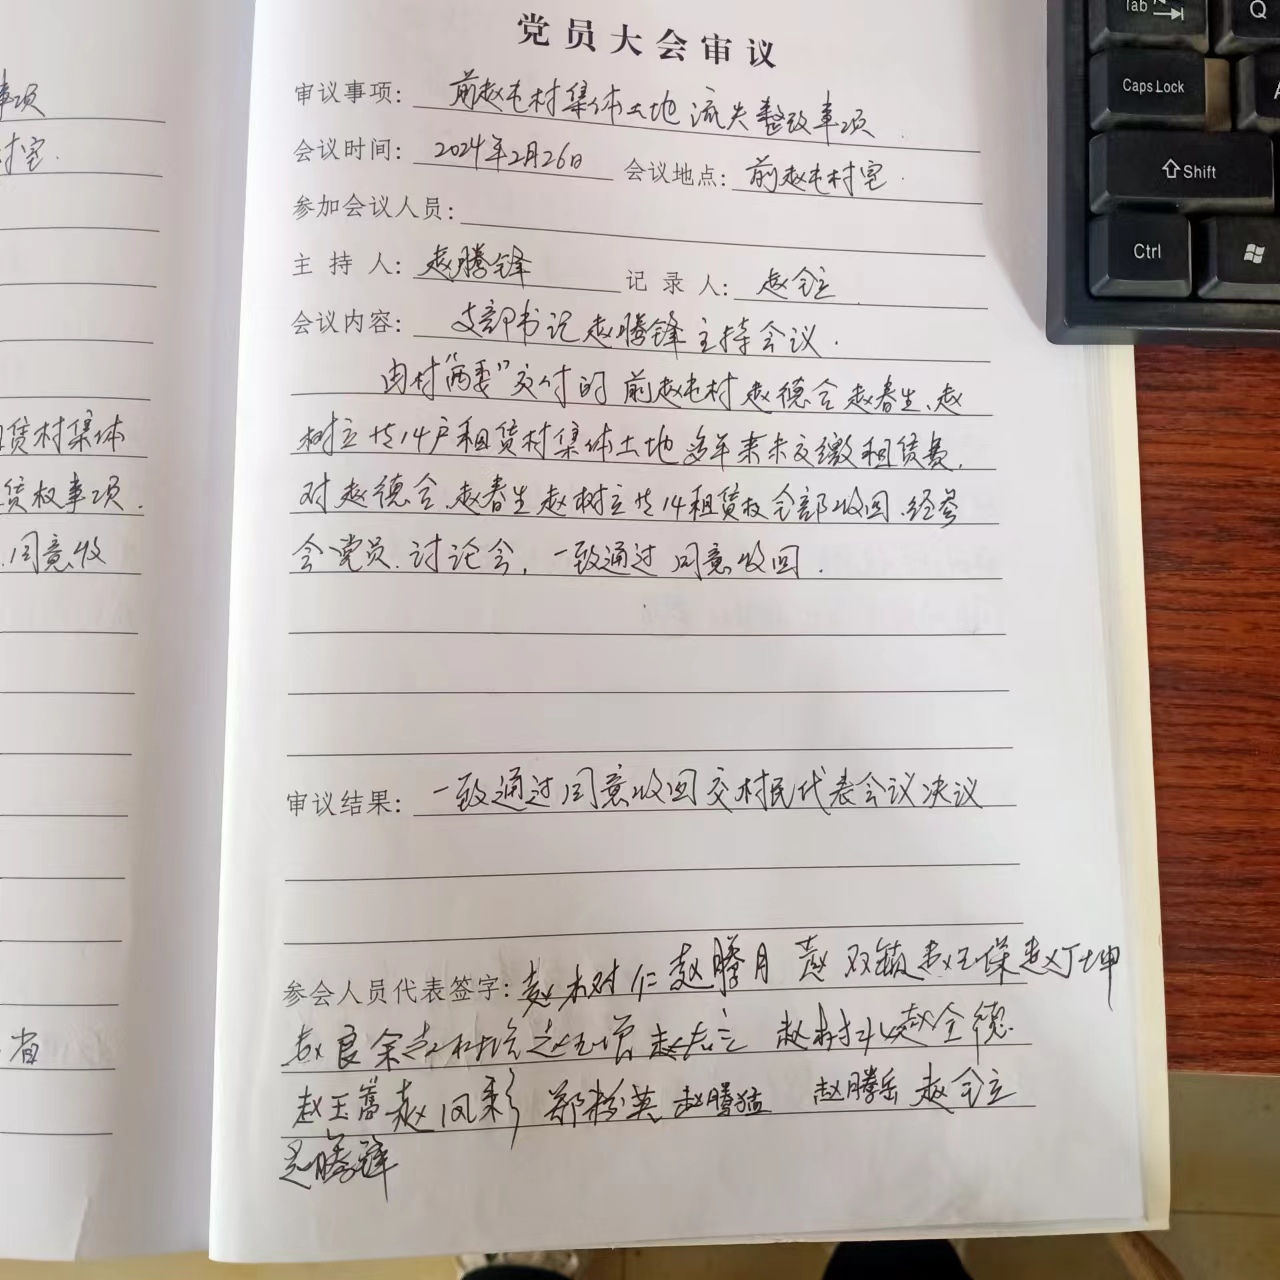 事项
村室.
租赁村集体
赁权事项.
同意收
省
党员大会审议
审议事项: 前赵屯村集体土地流失整改事项
会议时间: 2024年2月26日 会议地点: 前赵屯村室.
参加会议人员:
主持人: 赵腾锋 记录人: 赵全立
会议内容: 支部书记赵腾锋主持会议.
由村"两委"交付的前赵屯村赵德会赵春生、赵
树立共14户租赁村集体土地多年来未交缴租赁费,
对赵德会、赵春生赵树立共14租赁权全部收回、经参
会党员、讨论会, 一致通过同意收回.
审议结果: 一致通过同意收回交村民代表会议决议
参会人员代表签字: 赵树仁 赵腾月 赵双镇 赵玉保 赵丁坤
赵良余 赵玉增 赵全德
赵玉嵩 赵凤彩 郑粉英 赵腾猛 赵腾岳 赵全立
赵腾锋
Tab
Q
Caps Lock
A
Shift
Ctrl